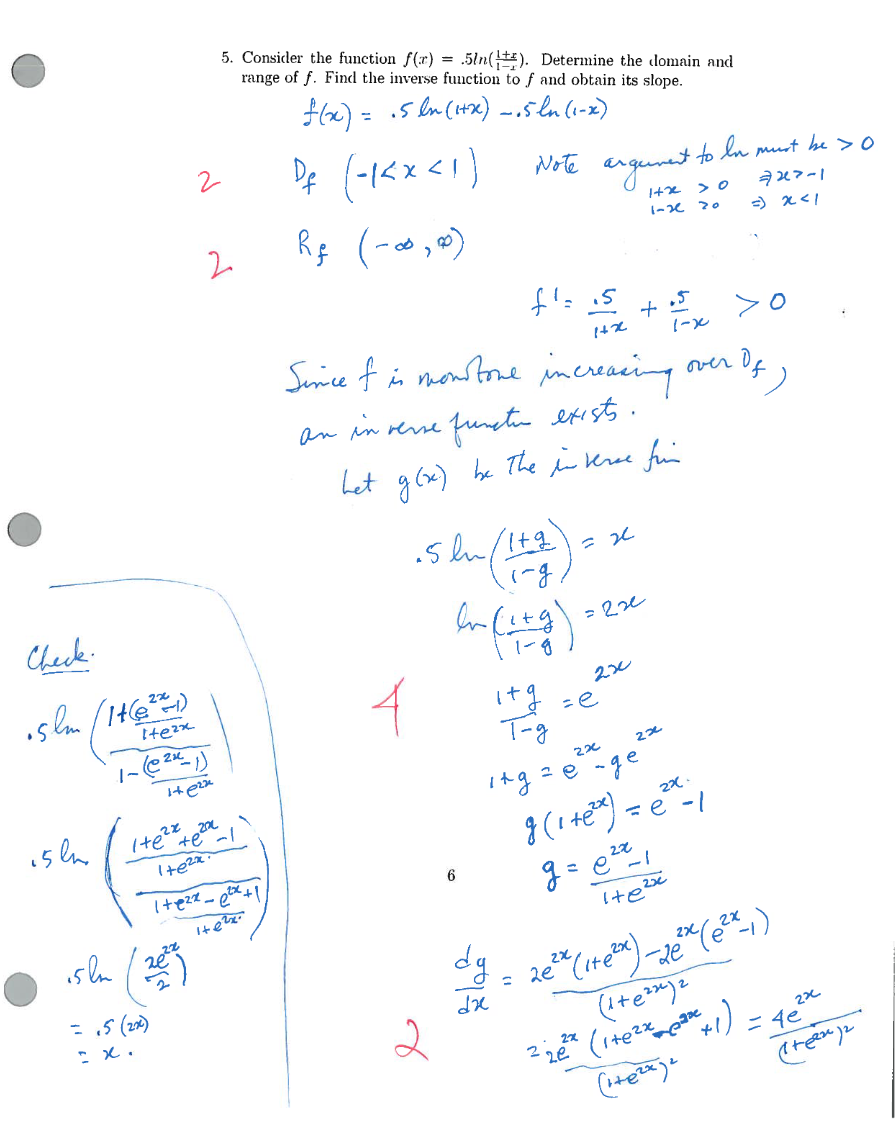 5. Consider the function f(x) = .5ln(\frac{1+x}{1-x}). Determine the domain and
range of f. Find the inverse function to f and obtain its slope.
f(x) = .5 ln(1+x) - .5 ln(1-x)
2 D_f (-1<x<1) Note argument to ln must be > 0
1+x > 0 ⇒ x>-1
1-x >0 ⇒ x<1
2 R_f (-∞, ∞)
f' = \frac{.5}{1+x} + \frac{.5}{1-x} > 0
Since f is monotone increasing over D_f,
an inverse functn exists.
Let g(x) be the inverse fun
.5 ln(\frac{1+g}{1-g}) = x
ln(\frac{1+g}{1-g}) = 2x
4 \frac{1+g}{1-g} = e^{2x}
1+g = e^{2x} - ge^{2x}
g(1+e^{2x}) = e^{2x} - 1
g = \frac{e^{2x}-1}{1+e^{2x}}
Check.
.5 ln(\frac{1+\frac{(e^{2x}-1)}{1+e^{2x}}}{1-\frac{(e^{2x}-1)}{1+e^{2x}}})
.5 ln(\frac{\frac{1+e^{2x}+e^{2x}-1}{1+e^{2x}}}{\frac{1+e^{2x}-e^{2x}+1}{1+e^{2x}}})
.5 ln(\frac{2e^{2x}}{2})
= .5 (2x)
= x.
6
\frac{dg}{dx} = \frac{2e^{2x}(1+e^{2x})-2e^{2x}(e^{2x}-1)}{(1+e^{2x})^2}
2 = \frac{2e^{2x}(1+e^{2x}-e^{2x}+1)}{(1+e^{2x})^2} = \frac{4e^{2x}}{(1+e^{2x})^2}